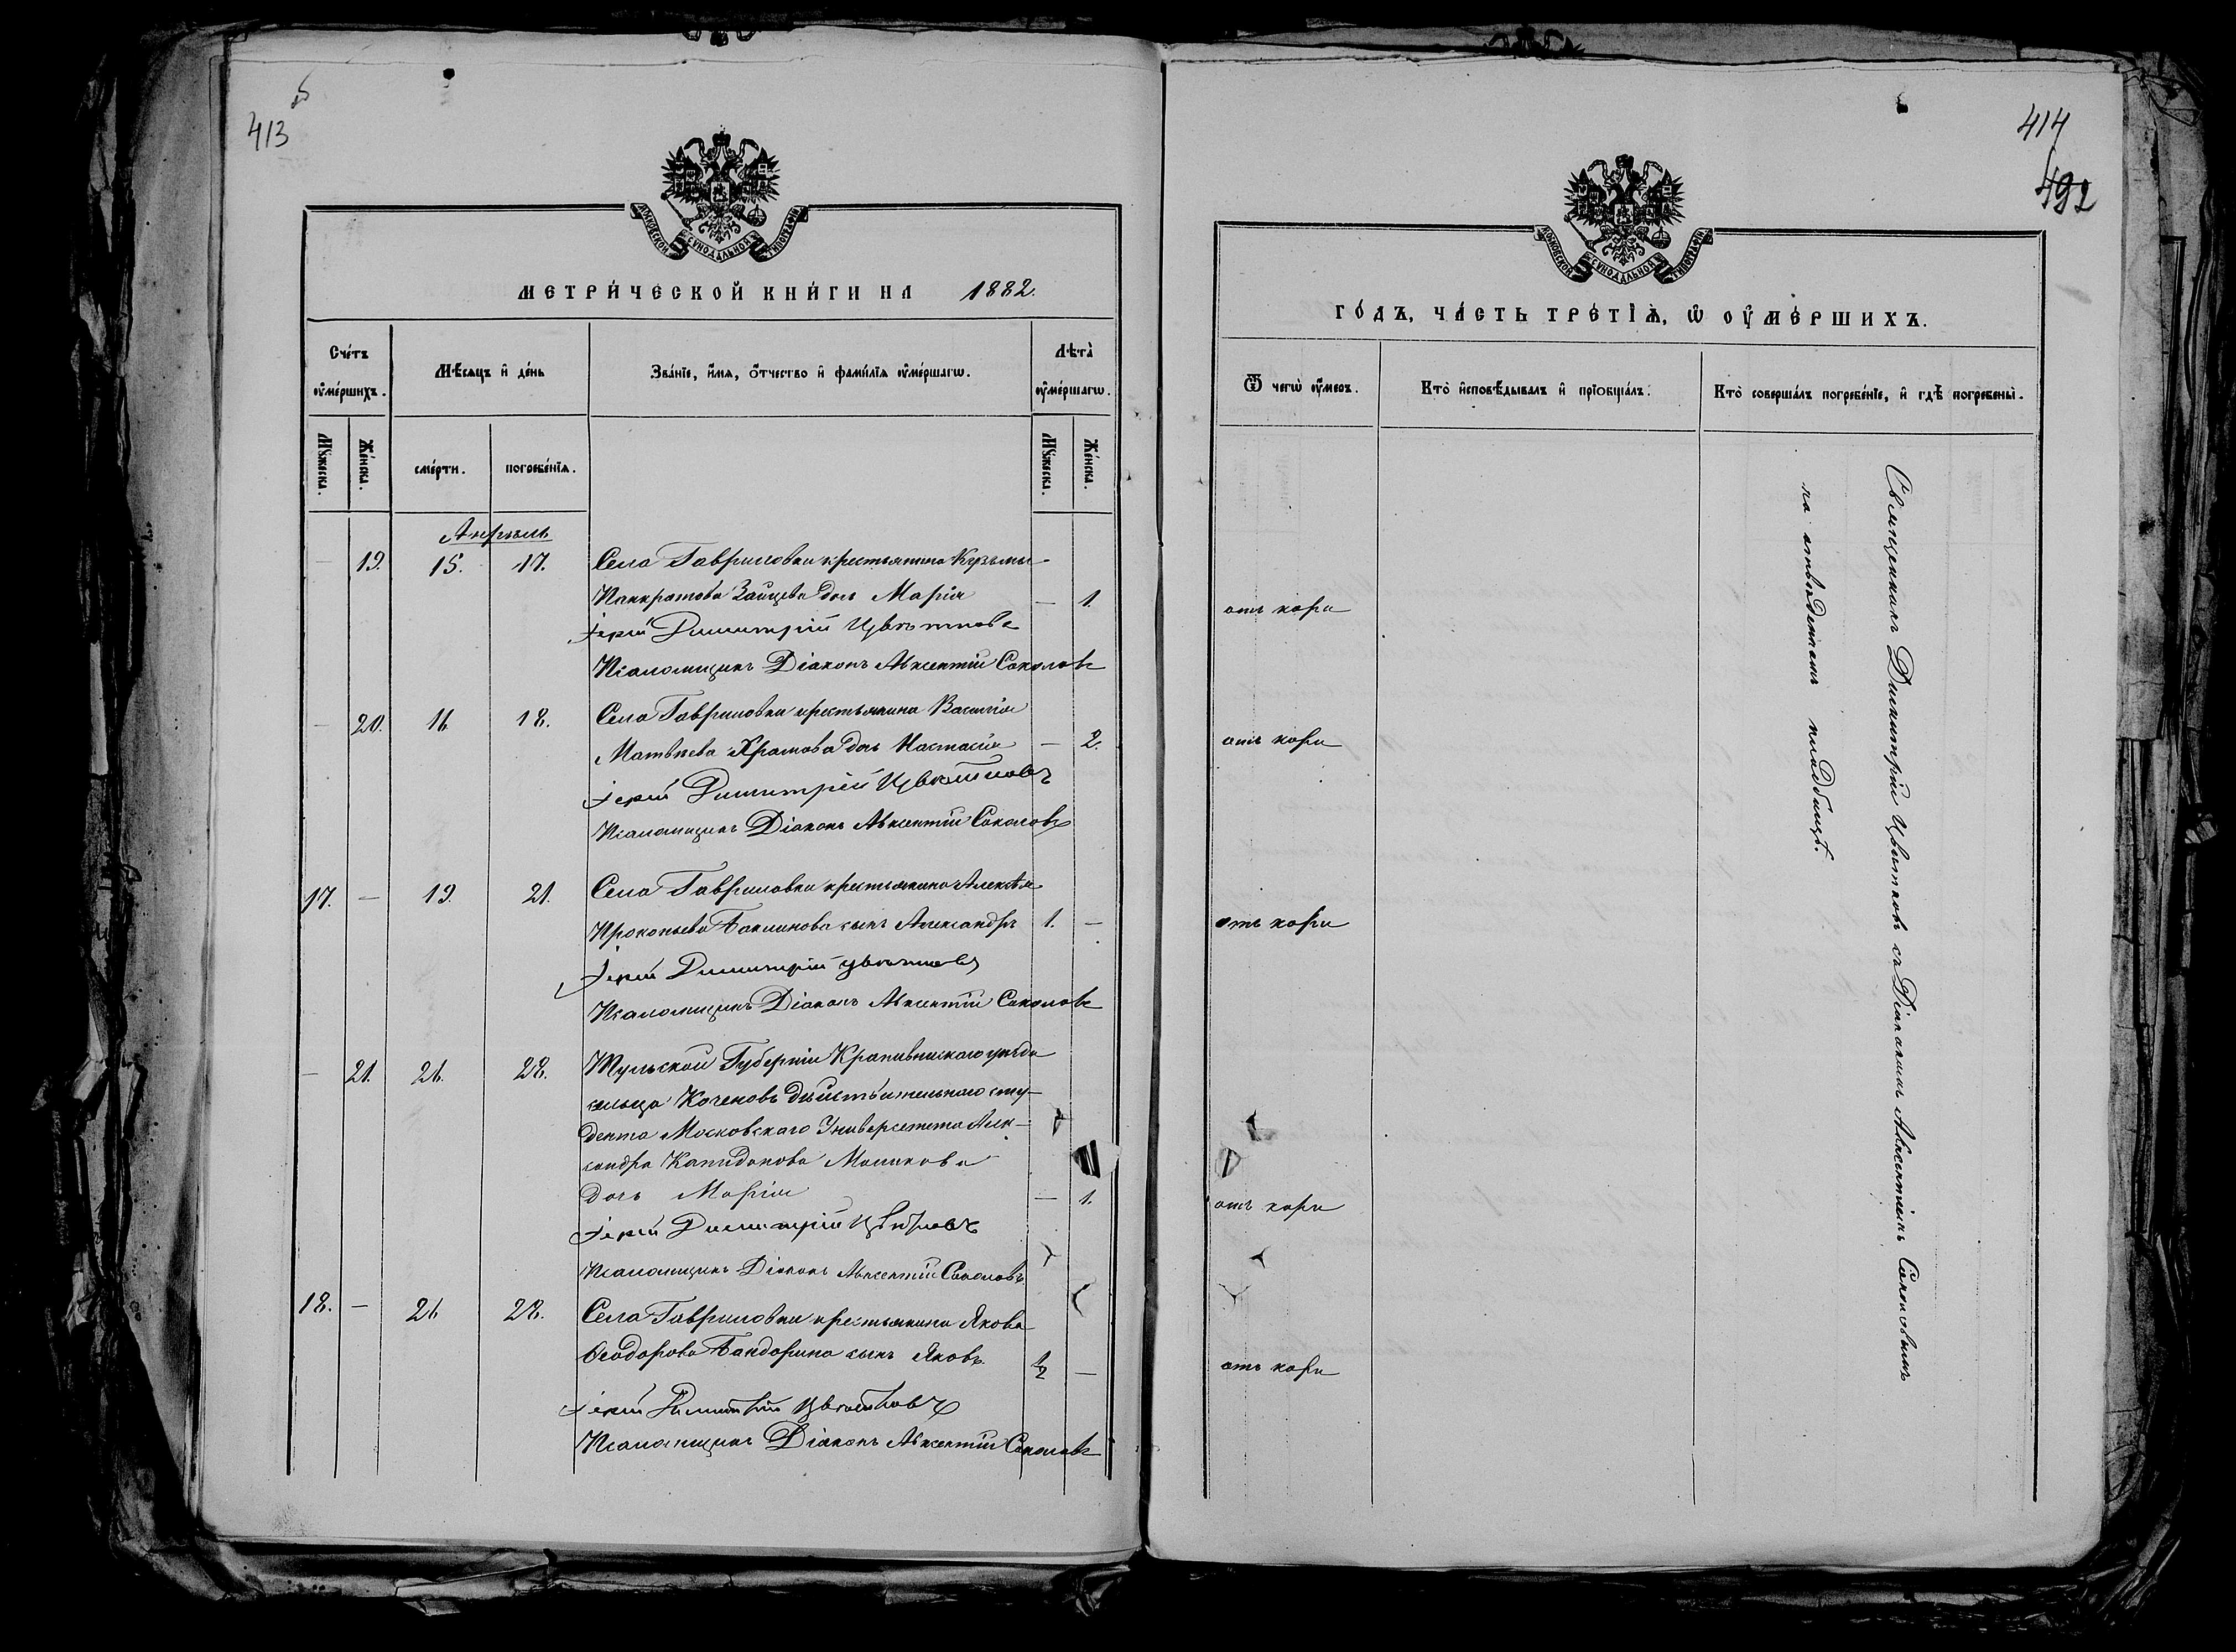 413
МОСКОВСКОЙ СУНОДАЛЬНОЙ ТИПОГРАФІИ
МЕТРИ́ЧЕСКОЙ КНИ́ГИ НА 1882.
Сче́тъ ᲂу҆ме́ршихъ.
Мѣ́сяцъ и҆ де́нь
Зва́нїе, и҆́мя, ѻ҆́тчество и҆ фами́лїя ᲂу҆ме́ршагѡ.
Лѣта̀ ᲂу҆ме́ршагѡ.
Мꙋ́жеска.
Же́нска.
сме́рти.
погребе́нїѧ.
Мꙋ́жеска.
Же́нска.
Апрѣль
— 19. 15. 17. Села Гавриловки крестьянина Кузьмы
Панкратова Зайцева дочь Марія — 1.
Іерей Димитрій Цвѣтковъ
Псаломщикъ Діаконъ Авксентій Соколовъ
— 20. 16 18. Села Гавриловки крестьянина Василія
Матвѣева Храмова дочь Настасія — 2.
Іерей Димитрій Цвѣтковъ
Псаломщикъ Діаконъ Авксентій Соколовъ
17. — 19. 21. Села Гавриловки крестьянина Алексѣя
Прокопьева Баклинова сынъ Александръ 1. —
Іерей Димитрій Цвѣтковъ
Псаломщикъ Діаконъ Авксентій Соколовъ
— 21. 26. 28. Тульской Губерніи Крапивинскаго уѣзда
сельца Коченовъ дѣйствительнаго сту-
дента Московскаго Университета Алек-
сандра Капидонова Маликова
дочь Марія — 1.
Іерей Димитрій Цвѣтковъ
Псаломщикъ Діаконъ Авксентій Соколовъ
18. — 26 28. Села Гавриловки крестьянина Якова
Ѳеодорова Бандорина сынъ Яковъ. ½ —
Іерей Димитрій Цвѣтковъ
Псаломщикъ Діаконъ Авксентій Соколовъ
414
492
МОСКОВСКОЙ СУНОДАЛЬНОЙ ТИПОГРАФІИ
ГО́ДЪ, ЧА́СТЬ ТРЕ́ТІѦ, Ѡ҆ ОУ҆МЕ́РШИХЪ.
Ѿ чегѡ̀ ᲂу҆́меръ.
Кто̀ и҆сповѣ́дывалъ и҆ прїѡбща́лъ.
Кто̀ соверша́лъ погребе́нїе, и҆ гдѣ̀ погребены̀.
отъ кори
отъ кори
отъ кори
отъ кори
отъ кори
Священникъ Димитрій Цвѣтковъ съ Діакономъ Авксентіемъ Соколовымъ
на отвѣденномъ кладбищѣ.